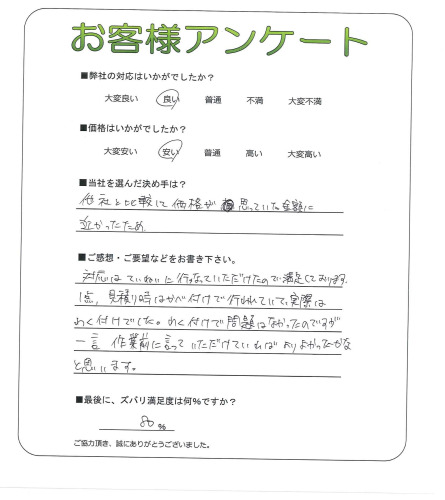 お客様アンケート
■弊社の対応はいかがでしたか?
大変良い 良い 普通 不満 大変不満
■価格はいかがでしたか?
大変安い 安い 普通 高い 大変高い
■当社を選んだ決め手は?
他社と比較して価格が思っていた金額に
近かったため
■ご感想・ご要望などをお書き下さい。
対応はていねいに行なっていただけたので満足しております。
1点,見積り時はかべ付けで行われていて、実際は
わく付けでした。わく付けで問題はなかったのですが
一言 作業前に言っていただけていればよりよかったかな
と思います。
■最後に、ズバリ満足度は何%ですか?
80 %
ご協力頂き、誠にありがとうございました。